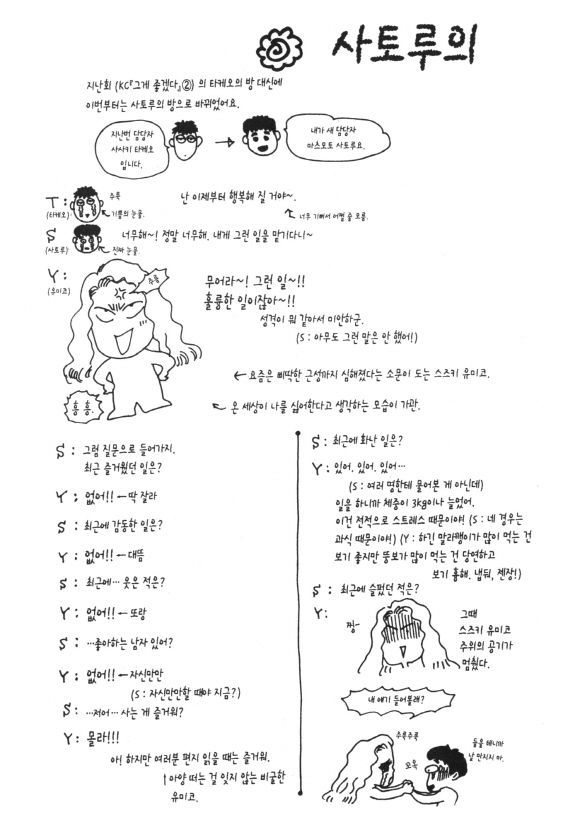 사토루의
지난회 (KC『그게 좋겠다』②) 의 타케오의 방 대신에
이번부터는 사토루의 방으로 바뀌었어요.
지난번 담당자
사사키 타케오
입니다.
내가 새 담당자
마츠모토 사토루요.
T:
(타케오)
주륵
기쁨의 눈물.
난 이제부터 행복해 질 거야~.
너무 기뻐서 어쩔 줄 모름.
S
(사토루)
진짜 눈물.
너무해~! 정말 너무해. 내게 그런 일을 맡기다니~
Y:
(유미코)
무어라~! 그런 일~!!
훌륭한 일이잖아~!!
성격이 뭐 같아서 미안하군.
(S : 아무도 그런 말은 안 했어!)
흥흥.
← 요즘은 삐딱한 근성까지 심해졌다는 소문이 도는 스즈키 유미코.
온 세상이 나를 싫어한다고 생각하는 모습이 가관.
S : 그럼 질문으로 들어가지.
최근 즐거웠던 일은?
Y : 없어!! ← 딱 잘라
S : 최근에 감동한 일은?
Y : 없어!! ← 대뜸
S : 최근에… 웃은 적은?
Y : 없어!! ← 또랑
S : …좋아하는 남자 있어?
Y : 없어!! ← 자신만만
(S : 자신만만할 때야 지금?)
S : …저어… 사는 게 즐거워?
Y : 몰라!!!
아! 하지만 여러분 편지 읽을 때는 즐거워.
↑아양 떠는 걸 잊지 않는 비굴한
유미코.
S : 최근에 화난 일은?
Y : 있어. 있어. 있어…
(S : 여러 명한테 물어본 게 아닌데)
일을 하니까 체중이 3kg이나 늘었어.
이건 전적으로 스트레스 때문이야! (S : 네 경우는
과식 때문이야!) (Y : 하긴 말라깽이가 많이 먹는 건
보기 좋지만 뚱보가 많이 먹는 건 당연하고
보기 흉해. 냅둬, 젠장!)
S : 최근에 슬펐던 적은?
Y:
찡-
그때
스즈키 유미코
주위의 공기가
멈췄다.
내 얘기 들어볼래?
주룩주룩
꼬옥
들을 테니까
날 만지지 마.